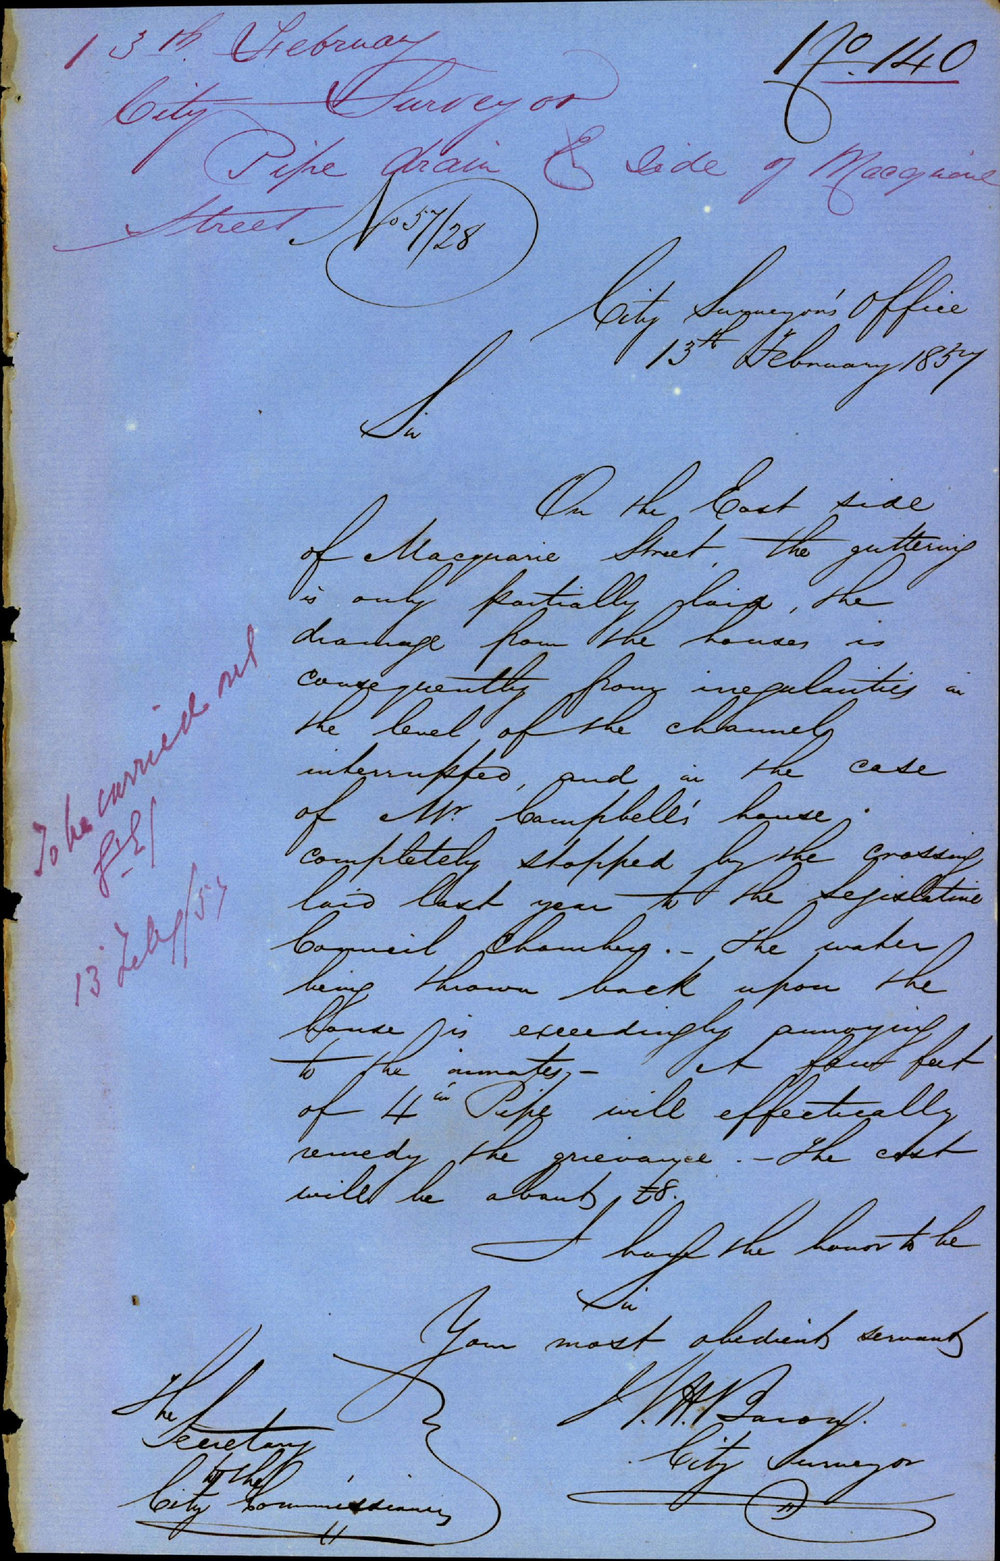 13th February
No. 140
City Surveyor
Pipe drain E side of Macquarie
Street
No 57/28
City Surveyor's Office
13th February 1857
Sir
On the East side
of Macquarie Street, the guttering
is only partially laid, the
drainage from the houses is
consequently from irregularities in
the level of the channel
interrupted, and in the case
of Mr. Campbell's house
completely stopped by the crossing
laid last year to the Legislative
Council Chambers. - The water
being thrown back upon the
house is exceedingly annoying
to the inmates, - A few feet
of 4 in Pipe will effectually
remedy the grievance. - The cost
will be about £8.
I have the honor to be
Sir
Your most obedient servant
City Surveyor
The
Secretary
to the
City Commissioners
To be carried out
13 Feby/57